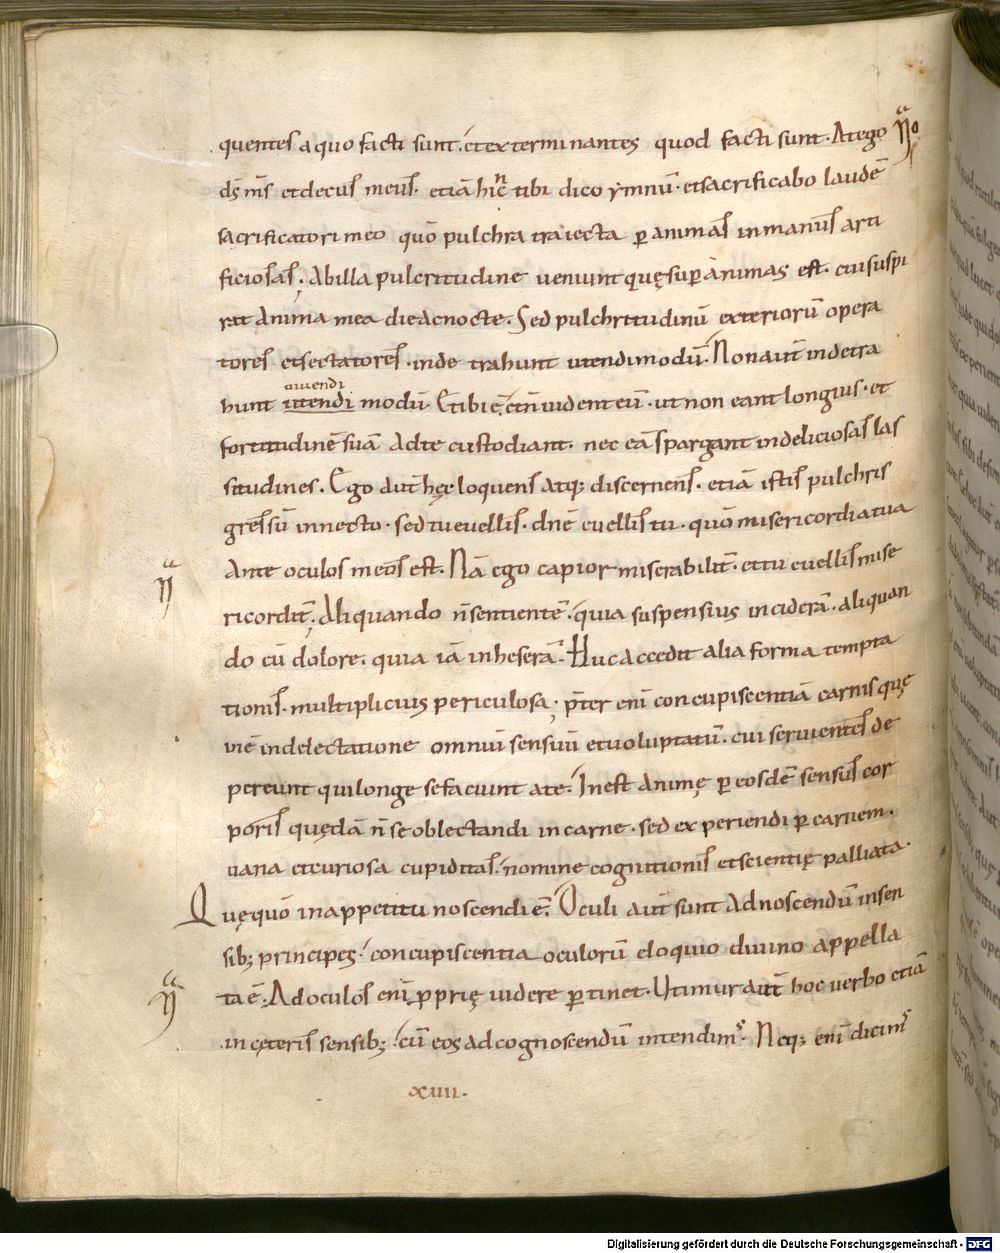 quentes a quo facti sunt. et exterminantes quod facti sunt. At ego
ds̄ m̄s et decus meūs. etiā hī́c tibi dico ẏmnū. et sacrificabo laudē
sacrificatori meo quō pulchra traiecta ꝑ animas in manus arti
ficiosas. Ab illa pulcritudine ueniunt quę suꝑ animas est. cui suspi
rat anima mea die ac nocte. Sed pulchritudinū exteriorū opera
tores et sectatores. inde trahunt utendi modū. Non aūt inde tra
uiuendi
hunt utendi modū. Et ibi ē. et n̄ uident eū. ut non eant longius. et
fortitudinē suā ad te custodiant. nec eā spargant in deliciosas las
situdines. Ego aut̄ hęc loquens atq; discernens. etiā istis pulchris
gressū innecto. sed tu euellis. dn̄e euellis tu. quō misericordia tua
ante oculos meos est. Nā ego capior miserabilit̄. et tu euellis mise
ricordit̄. Aliquando n̄ sentientē. quia suspensius incideram̄. aliquan
do cū dolore. quia iā inheserā. Huc accedit alia forma tempta
tionis. multiplicius periculosa. p̄ter enī concupiscentiā carnis quę
inē in delectatione omniū sensuū et uoluptatū. cui seruientes de
pereunt qui longe se faciunt a te. Inest animę ꝑ eosdē sensus cor
poris quędā n̄ se oblectandi in carne. sed experiendi ꝑ carnem.
uana et curiosa cupiditas. nomine cognitionis et scientię palliata.
Quę quō in appetitu noscendi ē. Oculi aut̄ sunt ad noscendū in sen
sib; principes. concupiscentia oculorū eloquio diuino appella
ta ē. Ad oculos enī ꝓprię uidere ꝑtinet. Utimur aut̄ hoc uerbo etiā
in cęteris sensib;. cū eos ad cognoscendū intendim'. Neq; enī dicim'
xuii.
Digitalisierung gefördert durch die Deutsche Forschungsgemeinschaft - DFG